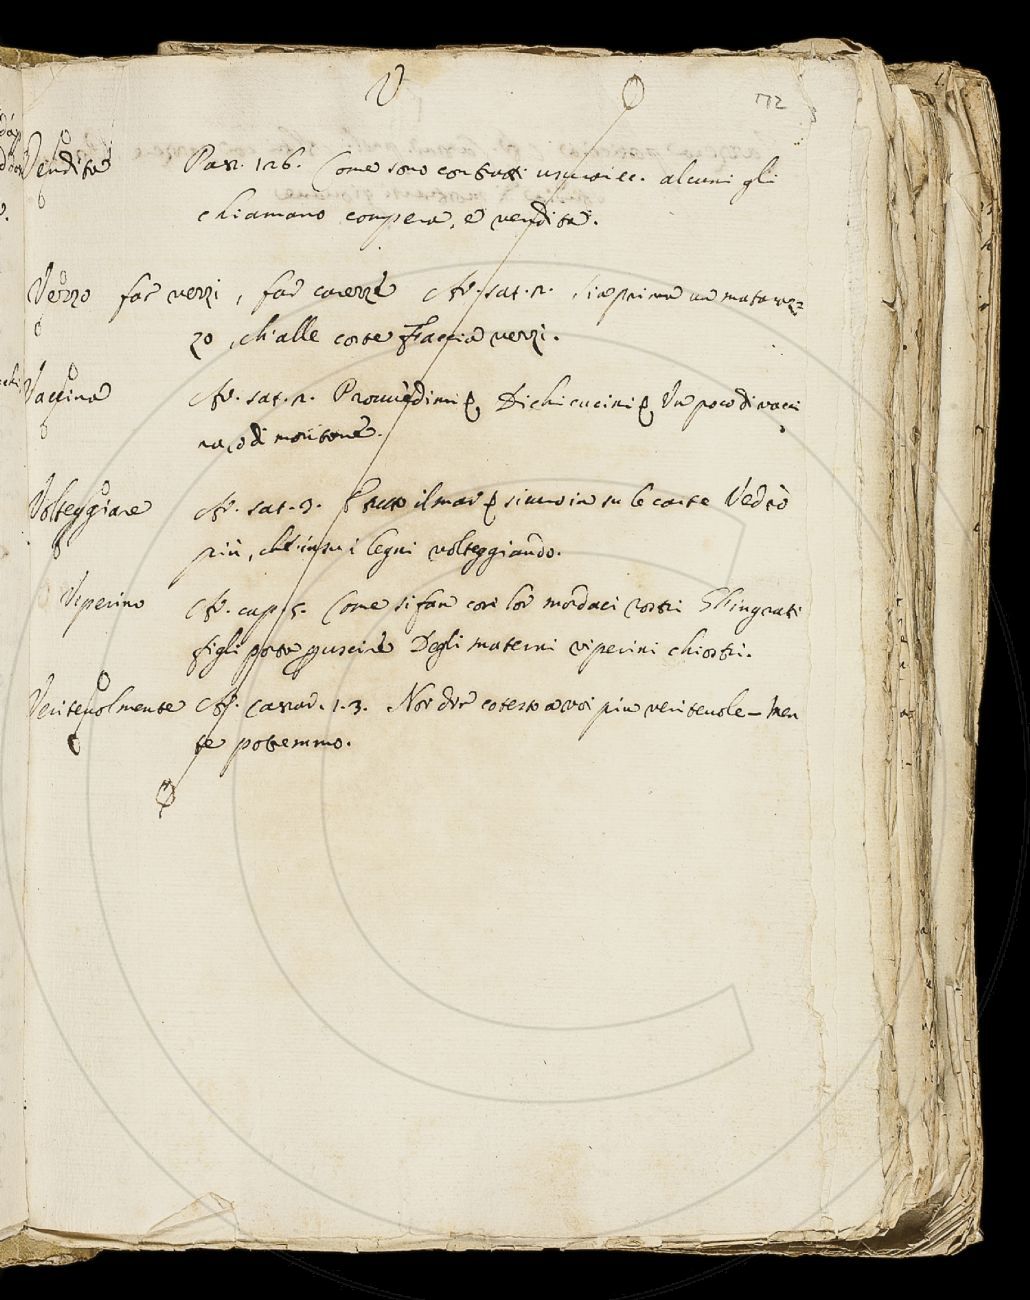 V
172
Vendita Pas. 126. Come sono contratti usurai ec. alcuni gli
chiamano compera, e vendita.
Vezzo far vezzi, far carezze Ar. sat. 2. sia prima un mataraz=
zo, ch'alle coste faccia vezzi.
Vaccina Ar. sat. 2. Di chi cucini Un poco di vacci
na, o di montone.
Volteggiare Ar. sat. 3. tutto il mar sicuro in su le carte Vedrò
più, che in su i legni volteggiando.
Viperino Ar. cap. 5. Come si fan coi lor mordaci rostri Gl'ingrati
figli porta Degli materni viperini chiostri.
Veritevolmente Ar. Cassar. 1. 3. Noi dir cotesto a voi piu veritevole-men
te potremmo.